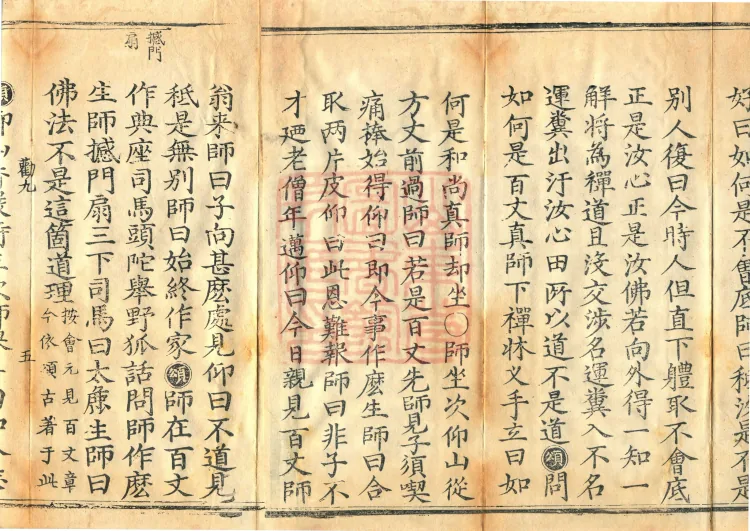 好曰如何是不會底師曰秖汝是不是
別人復曰今時人但直下軆取不會底
正是汝心正是汝佛若向外得一知一
解將為禪道且沒交涉名運糞入不名
運糞出汙汝心田所以道不是道頌問
如何是百丈真師下禪牀叉手立曰如
何是和尚真師却坐〇師坐次仰山從
方丈前過師曰若是百丈先師見子須喫
痛捧始得仰曰即今事作麽生師曰合
取两片皮仰曰此恩難報師曰非子不
才廼老僧年邁仰曰今日親見百丈師
翁来師曰子向甚麽處見仰曰不道見
秪是無別師曰始終作家頌師在百丈
作典座司馬頭陀舉野狐話問師作麽
生師撼門扇三下司馬曰太麄生師曰
佛法不是這箇道理按會元見百丈章
今依頌古著于此
撼門
扇
勸九
五